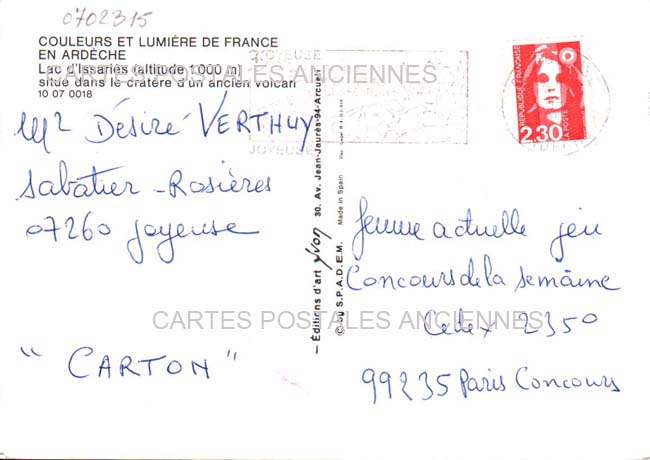 0702315
COULEURS ET LUMIÈRE DE FRANCE
EN ARDÈCHE
Lac d'Issarlès (altitude 1 000 m)
situé dans le cratère d'un ancien volcan
10 07 0018
CARTES POSTALES ANCIENNES
JOYEUSE
JOYEUSE
RÉPUBLIQUE FRANÇAISE
2,30
LA POSTE
Mr Désiré VERTHUY
Sabatier - Rosières
07260 Joyeuse
" CARTON "
— Éditions d'art Yvon 30, Av. Jean-Jaurès-94-Arcueil
© by S.P.A.D.E.M. Made in Spain
femme actuelle jeu
Concours de la semaine
Cedex 2350
99235 Paris Concours
CARTES POSTALES ANCIENNES